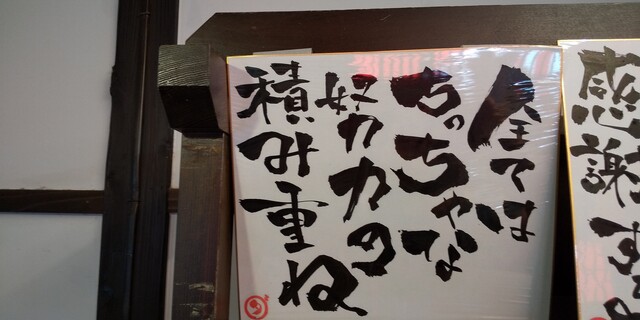 全ては
ちっちゃな
努力の
積み重ね
感謝